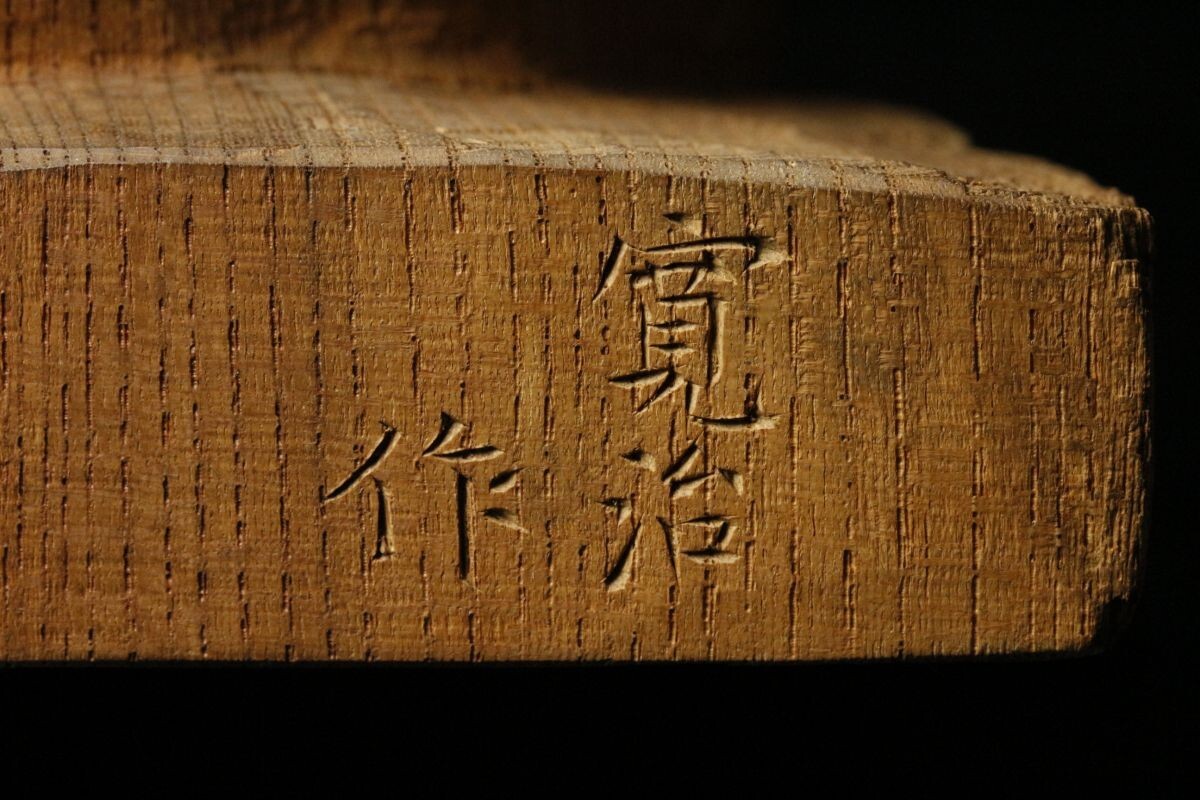 寛治
作